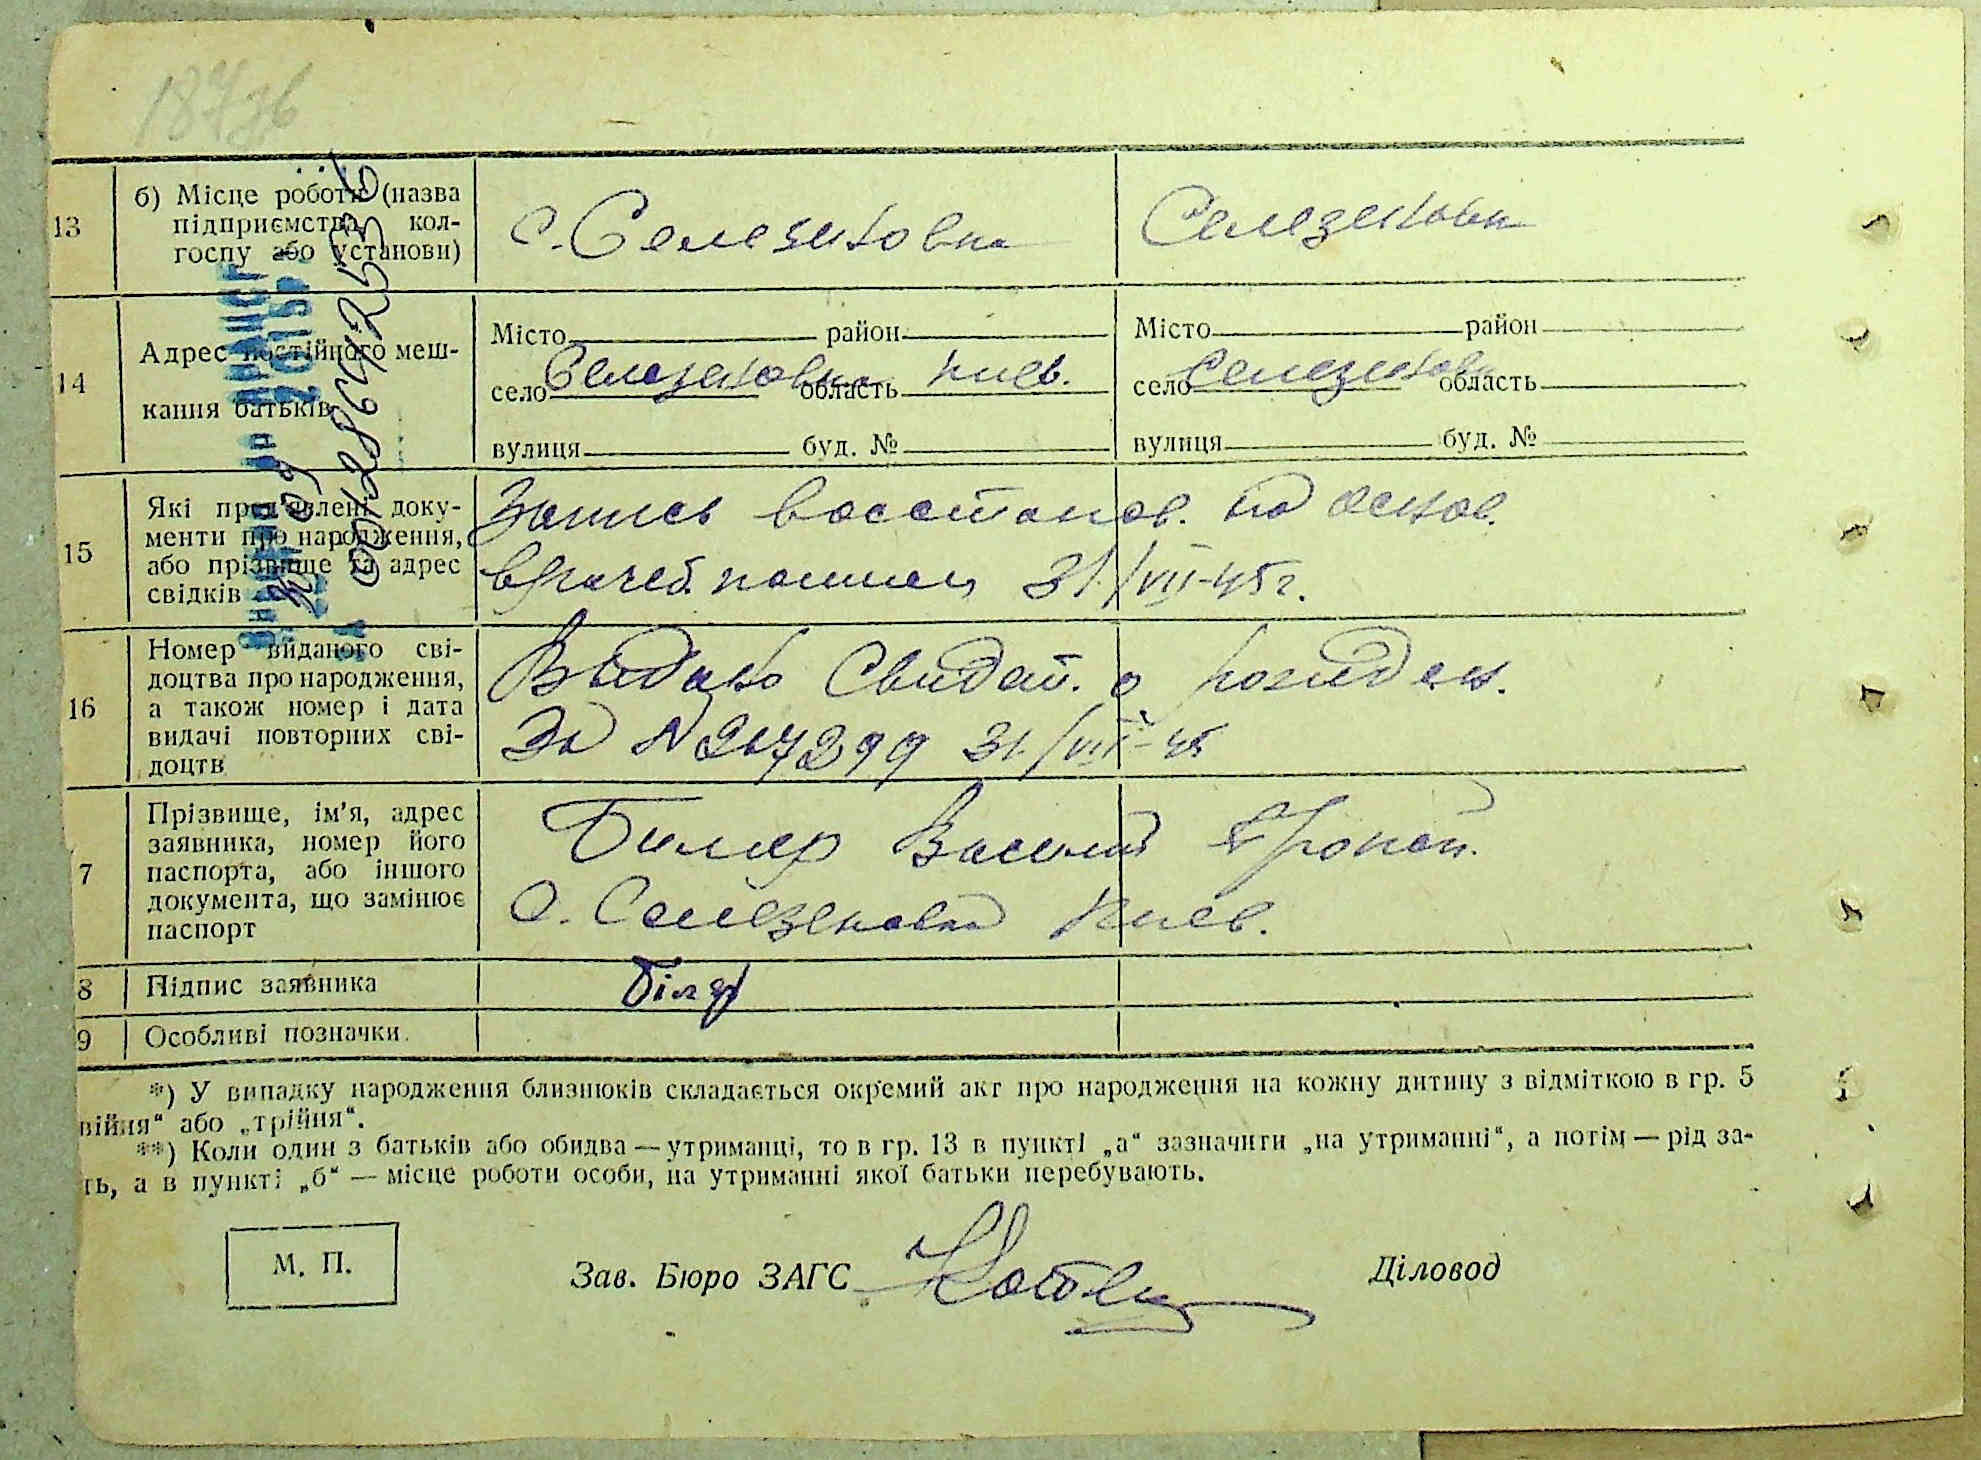 187зв
13
б) Місце роботи (назва
підприємства, кол-
госпу або установи)
с. Селезновка
Селезновка
14
Адрес постійного меш-
кання батьків
Місто район
село Селезеновка область Киев.
вулиця буд. №
Місто район
село Селезеновк область
вулиця буд. №
15
Які пред'явлені доку-
менти про народження,
або прізвище та адрес
свідків
Запись восстанов. на основ.
врачеб. комиссии 31/VII-45 г.
16
Номер виданого сві-
доцтва про народження,
а також номер і дата
видачі повторних сві-
доцтв
Видано Свидет. о рожден.
За № 217299 31/VII-45
7
Прізвище, ім'я, адрес
заявника, номер його
паспорта, або іншого
документа, що замінює
паспорт
Василий
С. Селезеновка Киев.
8
Підпис заявника
9
Особливі позначки.
*) У випадку народження близнюків складається окремий акт про народження на кожну дитину з відміткою в гр. 5
війня“ або „трійня“.
**) Коли один з батьків або обидва — утриманці, то в гр. 13 в пункті „а“ зазначити „на утриманні“, а потім — рід за-
ть, а в пункті „б“ — місце роботи особи, на утриманні якої батьки перебувають.
М. П.
Зав. Бюро ЗАГС
Діловод